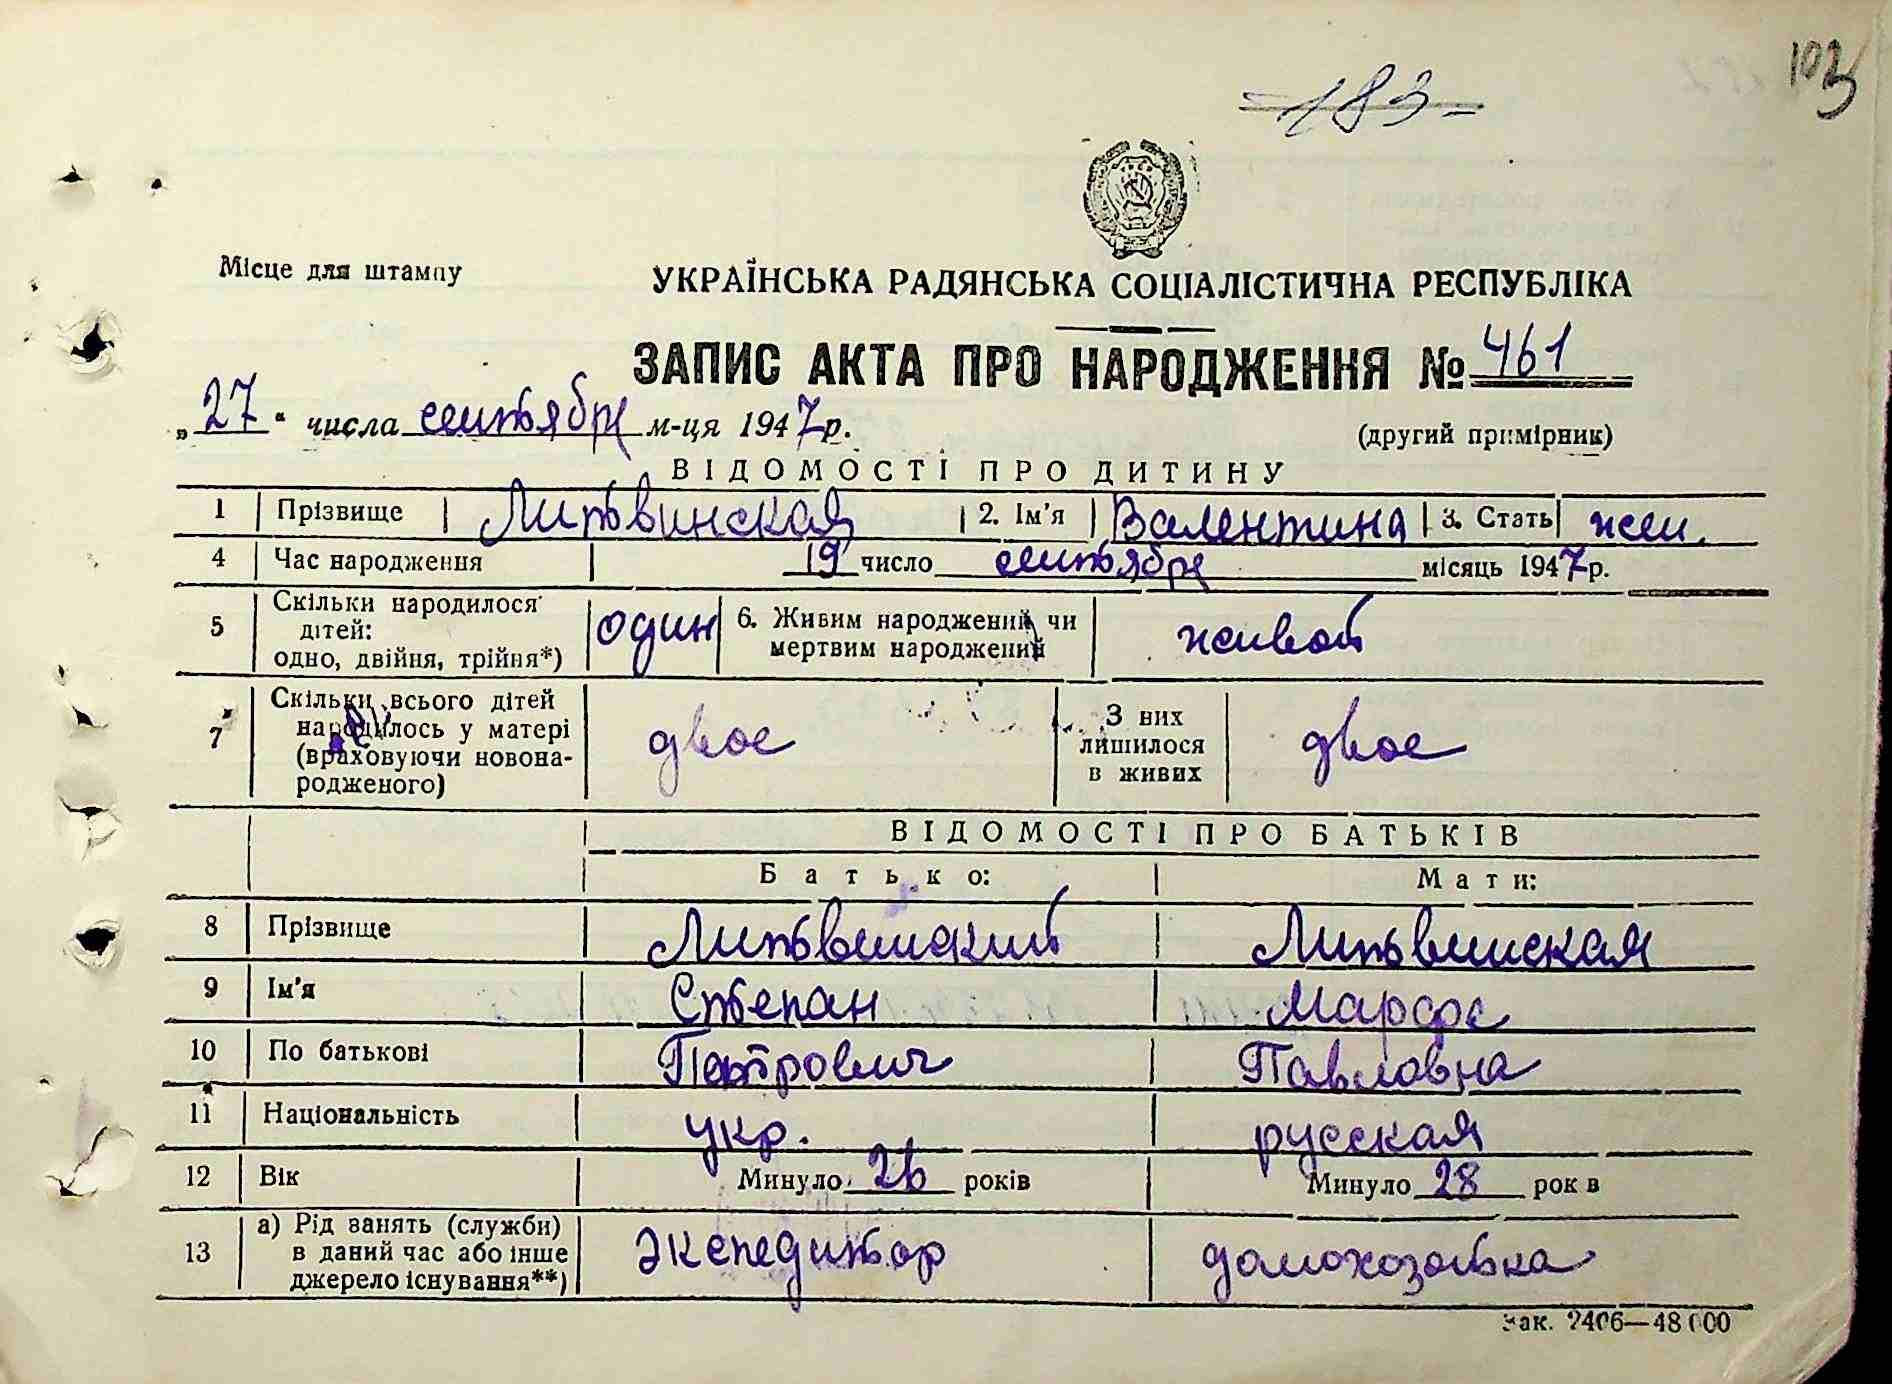 103
183
Місце для штампу
УКРАЇНСЬКА РАДЯНСЬКА СОЦІАЛІСТИЧНА РЕСПУБЛІКА
ЗАПИС АКТА ПРО НАРОДЖЕННЯ № 461
„27“ числа сентября м-ця 1947 р.
(другий примірник)
ВІДОМОСТІ ПРО ДИТИНУ
1 Прізвище Литвинская 2. Ім'я Валентина 3. Стать жен.
4 Час народження 19 число сентября місяць 1947 р.
5 Скільки народилося дітей: одно, двійня, трійня*) один 6. Живим народжений чи мертвим народжений живой
7 Скільки всього дітей народилось у матері (враховуючи новонародженого) двое З них лишилося в живих двое
ВІДОМОСТІ ПРО БАТЬКІВ
Батько: Мати:
8 Прізвище Литвинский Литвинская
9 Ім'я Степан Марфа
10 По батькові Петрович Павловна
11 Національність укр. русская
12 Вік Минуло 26 років Минуло 28 рок в
13 а) Рід занять (служби) в даний час або інше джерело існування**) экспедитор домохозяйка
Зак. 2406—48000